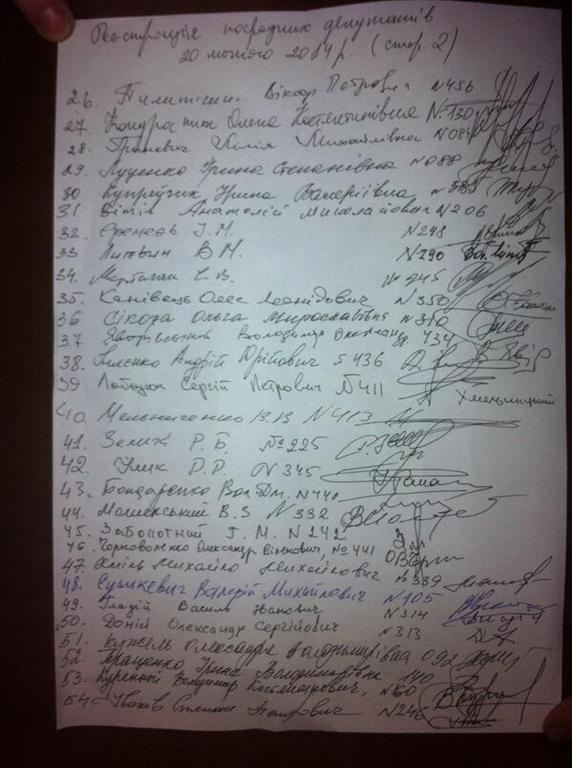 Реєстрація народних депутатів
20 лютого 2014 р. (стор. 2)
26. Пилипишин Віктор Петрович №456
27. Кондратюк Олена Костянтинівна № 130
28. Гриневич Лілія Михайлівна №084
29. Луценко Ірина Степанівна №088
30 Купрейчик Ірина Валеріївна № 383
31 Вітів Анатолій Миколайович №206
32. Єремеєв І.М. №248
33 Литвин В М. №290
34. Мартинюк С. В. № 245
35. Канівець Олесь Леонідович № 350
36 Сікора Ольга Мирославівна № 310
37 Яворівський Володимир 434
38. Іллєнко Андрій Юрійович 436
39 Лабазюк Сергій Петрович №411
Хмельницький
40. Мельниченко В.В №413
41. Зелик Р. Б. №225
42. Улик Р.Р. №345
43. Бондаренко Вол. Дм. №440
44. В.З №332
45. Заболотний Г. М. №242
46. Чорноволенко Олександр Вілінович, № 441
47. Хміль Михайло Михайлович №339
48. Сушкевич Валерій Михайлович №105
49. Гладій Василь Іванович №314
50. Доній Олександр Сергійович №313
51. Кужель Олександра Володимирівна 092
52. Геращенко Ірина Володимирівна 140
53. Куренной Володимир Костянтинович, №60
54. Іваків Степан Петрович №246